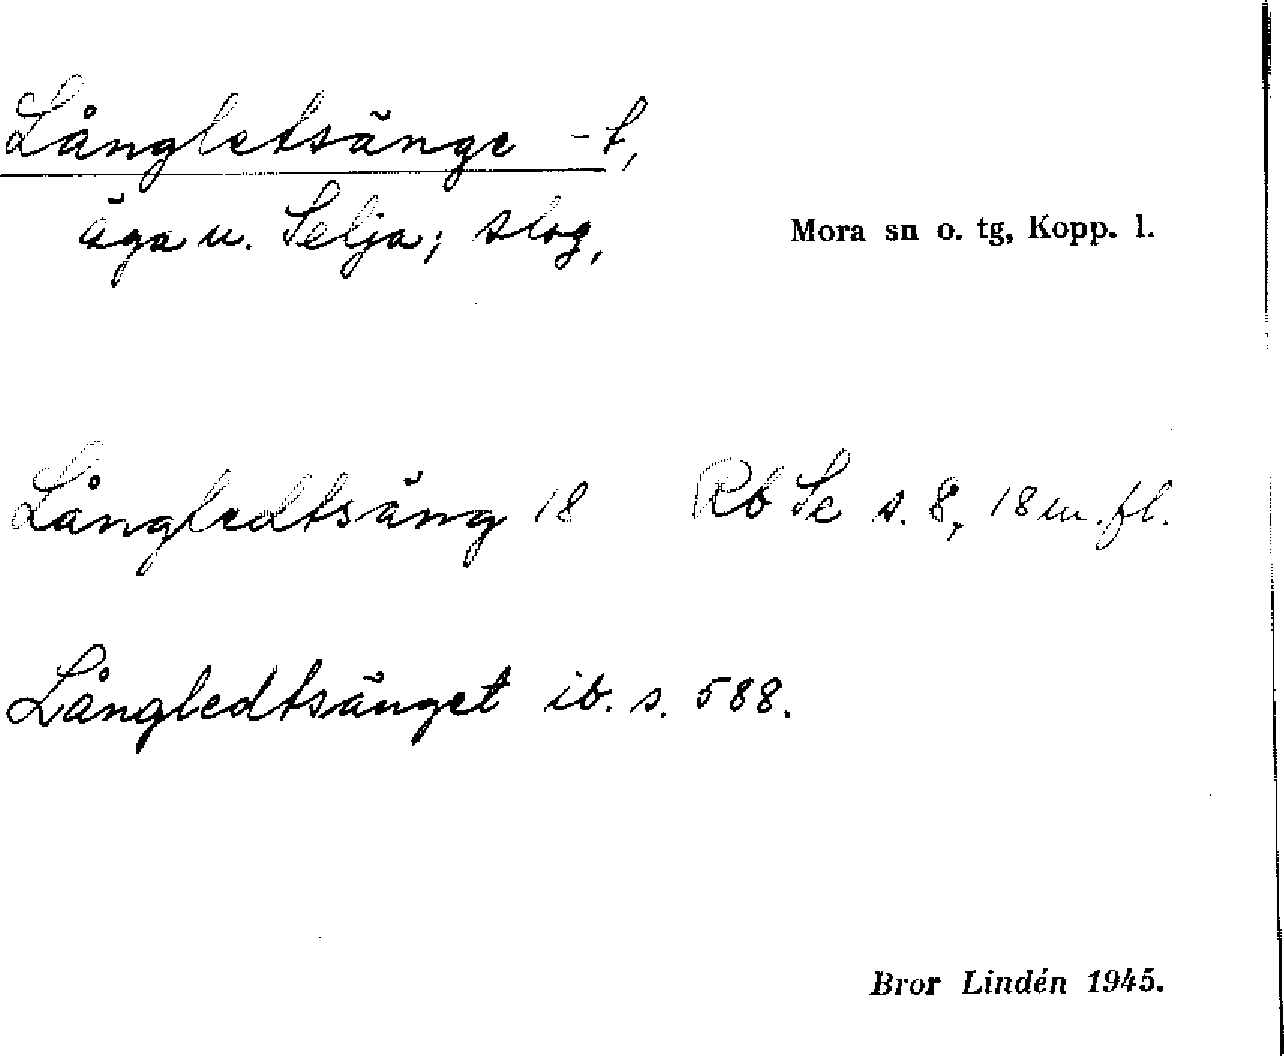 Långletsänge -t,
äga u. Selja; slog,
Mora sn o. tg, Kopp. l.
Långledtsäng 18 Rb Se s. 8, 18 m.fl.
Långledtsänget ib. s. 588.
Bror Lindén 1945.